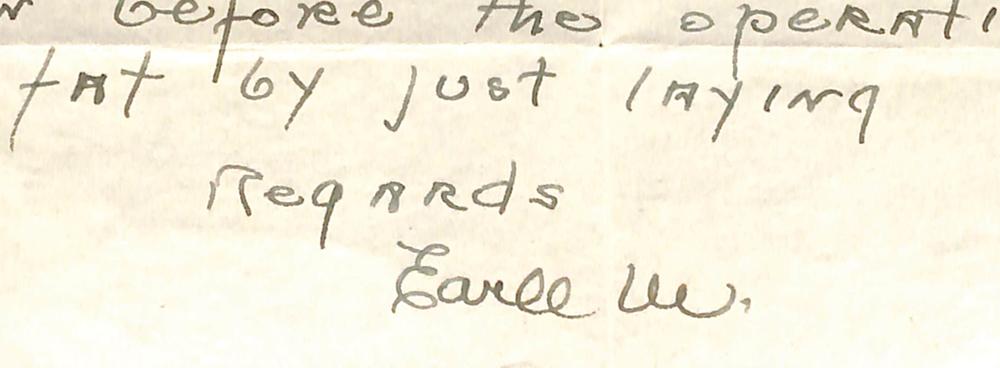 before the operati
fat by just laying
Regards
Earle W.